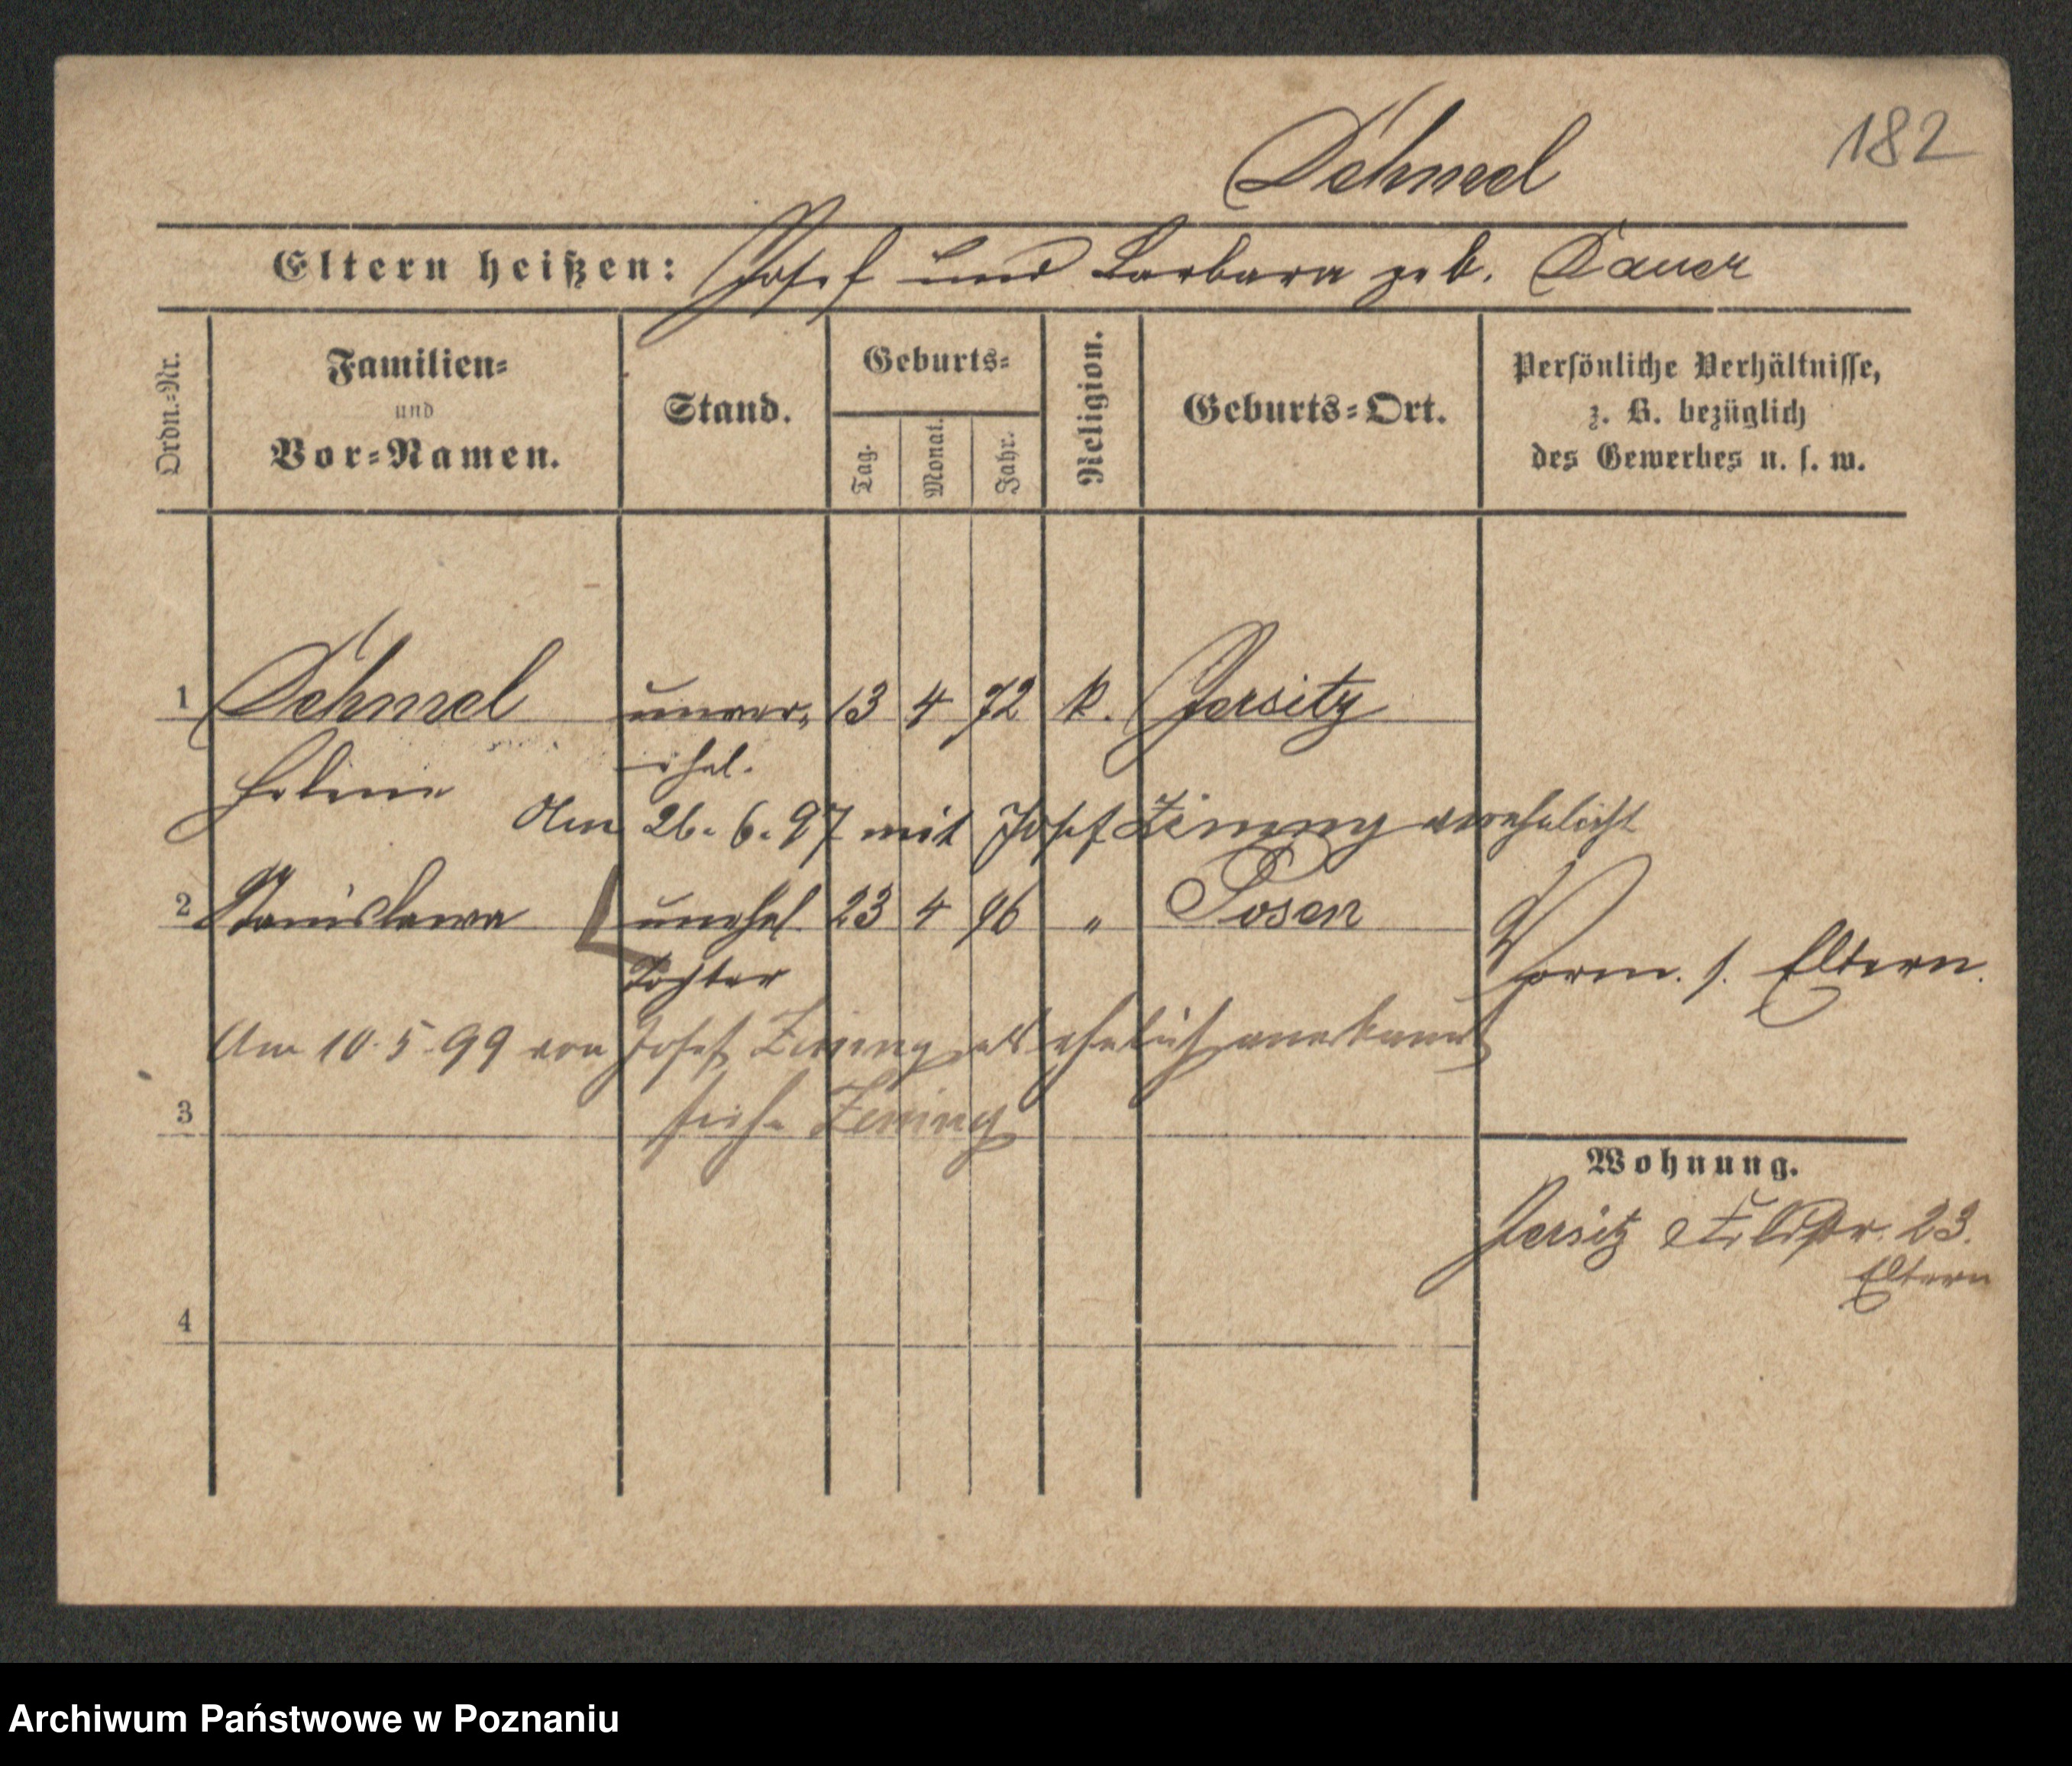 182
Dehmel
Eltern heißen: Josef und Barbara geb. Dauer
Ordn.-Nr.
Familien-
und
Vor-Namen.
Stand.
Geburts-
Tag.
Monat.
Jahr.
Religion.
Geburts-Ort.
Persönliche Verhältnisse,
z. B. bezüglich
des Gewerbes u. s. w.
1 Dehmel unver- 13 4 72 k. Jersitz
ehel.
Am 26. 6. 97 mit Josef verehelicht
2 Stanislawa unehel. 23 4 96 " Posen
Tochter
Vorm. s. Eltern.
Am 10. 5. 99 von Josef als ehelich anerkannt
3 siehe
Wohnung.
Jersitz 23.
Eltern
4
Archiwum Państwowe w Poznaniu